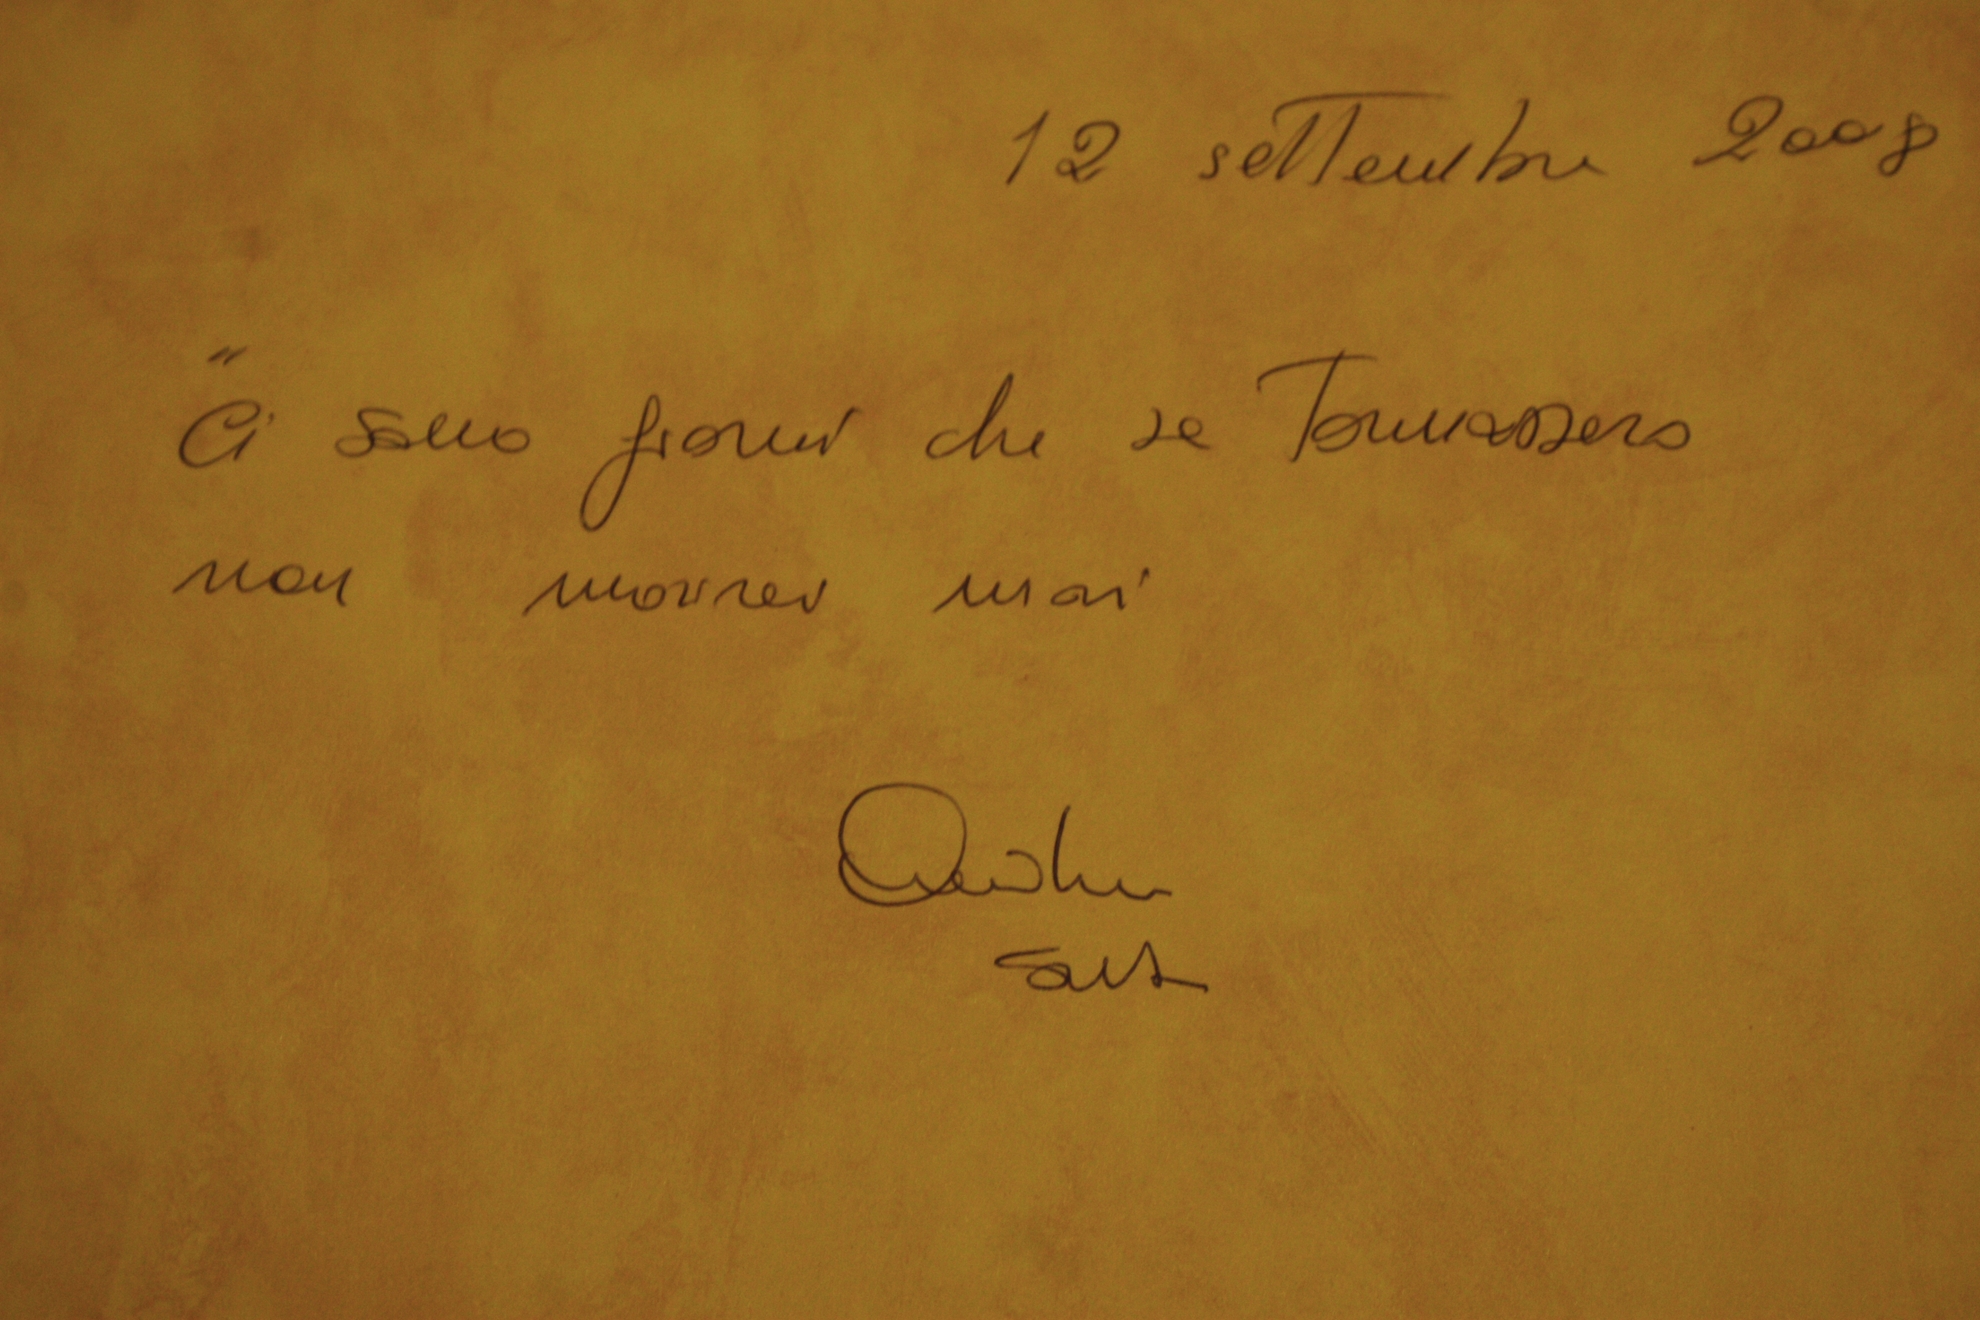 12 settembre 2008
"Ci sono giorni che se Tornassero
non morirei mai